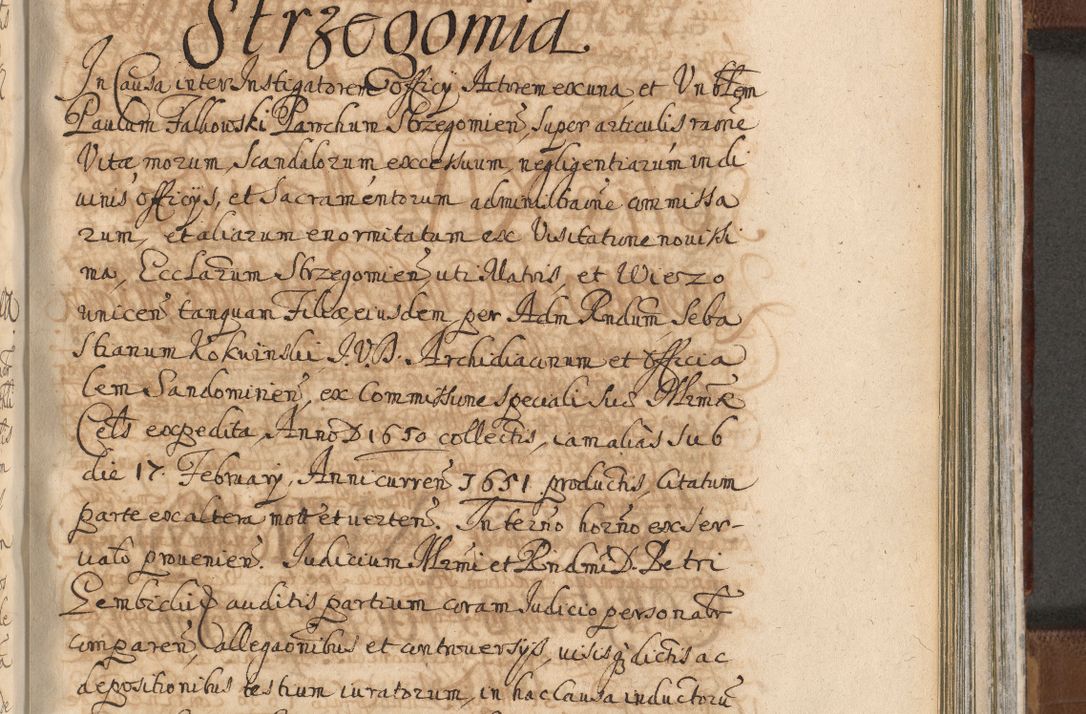 Strzegomia
In Causa inter Instigatorem Officy Actorem ex una, et Vnblem
Paulum Falkowski Parochum Strzegomien, super articulis raõne
Vitæ morum, Scandalorum excessuum, negligentiarum in di
uinis officÿs, et Sacramentorum administraõne commissa
rum, et aliarum enormitatum ex Visitatione nouissi
ma, Ecclarum Strzegomien, uti Matris, et Wierzo
unicen tanquam Filiæ, eiusdem, per Adm Rndum Seba
stianum Kokwinski I.V.D. Archidiaconum et officia
lem Sandomirien, ex Commissione speciali Suæ Illrmæ
Cels expedita, Anno D 1650 collectis, iam alias sub
die 17. February, Anni curren 1651 productis, Citatum
parte ex altera mott et uerten. In terño horño ex ser-
uato prouenien. Iudicium Illrmi et Rndmi D. Petri
Gembicki auditis partium coram Iudicio personalr
comparen, allegaonibus et controuersijs, uisisq dictis ac
depositionibus testium iuratorum, in hac Causa inductorũ